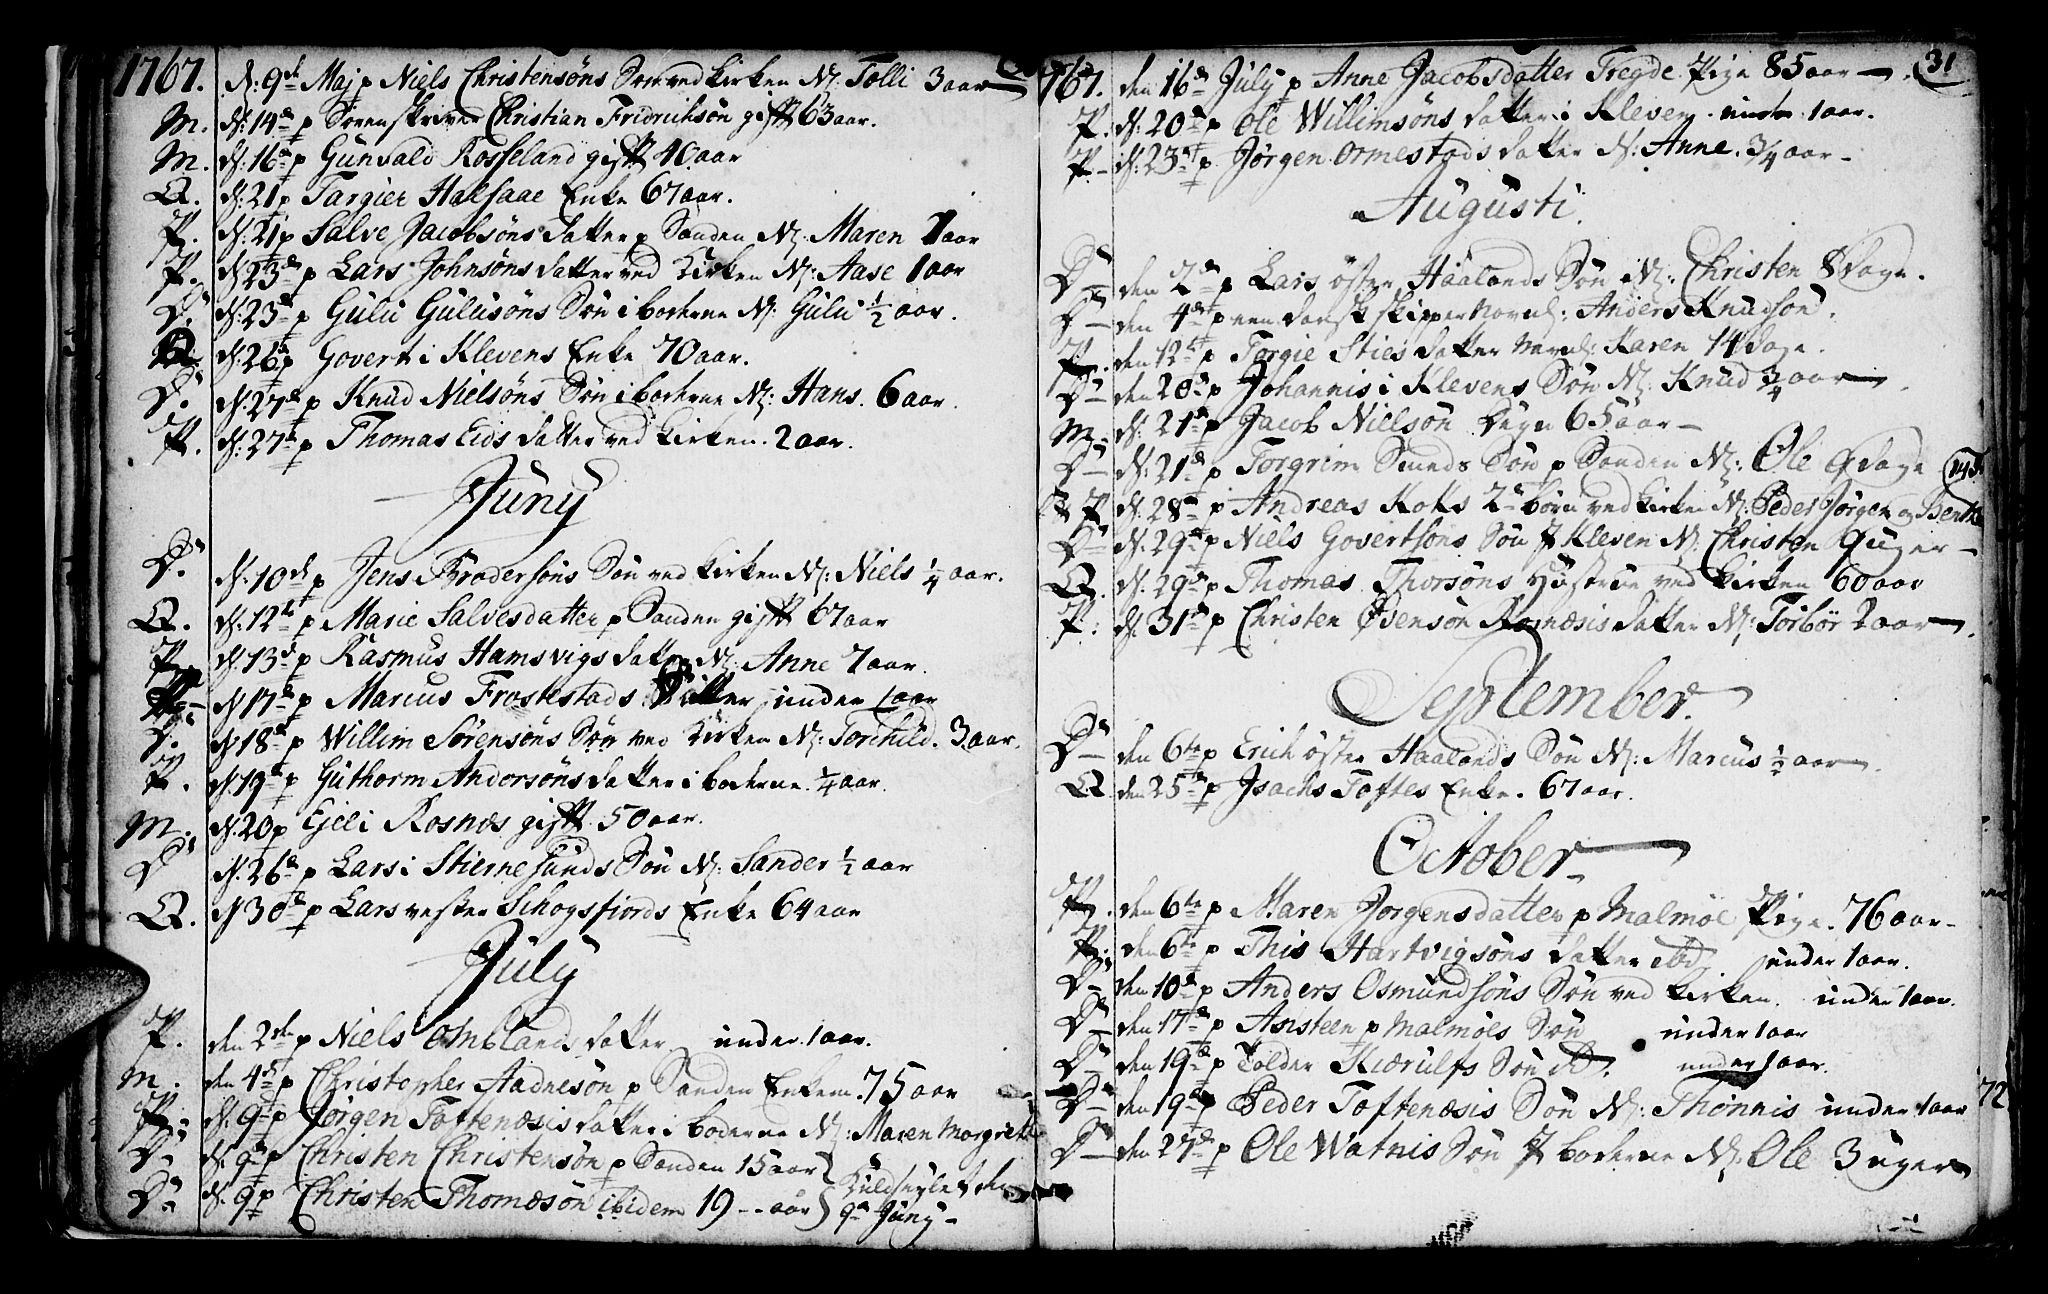 1767. d. 9de Maj p Niels Christensøns Søn ved Kirken N: Tolli 3 aar
M. d. 14de p Sorenskriver Christian Fridrichsøn gifft 63 aar.
M. d. 16de p Gunvald Rosseland gifft 40 aar
Q. d. 21 p Targier Halsaae Enke 67 aar.
P. d. 21 p Salve Jacobsøns datter p Sanden N: Maren 1 aar
P. d. 23de p Lars Johnsøns datter ved Kirken N: Aase 1 aar
D. d. 23de p Gulu Gulusøns Søn i boderne N: Gulu ½ aar.
Q. d. 26de p Govert i Klevens Enke 70 aar.
D. d. 27de p Knud Nielsøns Søn i boderne N: Hans. 6 aar.
P. d. 27de p Thomas Eids datter ved Kirken. 2 aar.
Juny
D. d. 10de p Jens Brodersøns Søn ved Kirken N: Niels ¼ aar.
Q. d. 12te p Marie Salvesdatter p Sanden gifft 67 aar
P. d. 13de p Rasmus Hamsvigs datter N: Anne 7 aar.
d. 17de p Marcus Frostestads datter under 1 aar
D. d. 18de p Willim Sørensøns Søn ved Kirken N: Torchild. 3 aar.
P. d. 19de p Guthorm Andersøns datter i boderne. ¼ aar.
M. d. 20 p Ejel i Rosnæs gifft. 50 aar.
D. d. 26de p Lars i Stiernesunds Søn N: Sander ½ aar
Q. d. 30de p Lars vester Schogsfiords Enke 64 aar
July
P. den 2den p Niels Omblands datter under 1 aar.
M. den 4de p Christopher Aadnesøn p Sanden Enkem. 75 aar
P. d. 9de p Jørgen Toftenæsis datter i boderne N: Maren Margrete
D. d. 9de p Christen Christensøn p Sanden 15 aar } Kuldseylet den
D. d. 9 p Christen Thomæsøn ibidem 19 -- aar } 9de Juny -
1767. den 16de July p Anne Jacobsdatter Tregde Pige 85 aar - 31
P. d. 20de p Ole Willimsøns datter i Kleven. under 1 aar.
P. d. 23de p Jørgen Ormestads datter N: Anne. ¾ aar -
Augusti.
D - den 2de p Lars øster Haalands Søn N: Christen 8 dage.
D - den 4de p een dansk skipper navnl: Anders Knudsøn.
P. den 12te p Torgie Sties datter navnl: Karen 14 dage.
D - den 20de p Johannis i Klevens Søn N: Knud ¾ aar.
M. d. 21de p Jacob Nielsøn Degn 65 aar -
D - d. 21de p Torgrim Smeds Søn p Sanden N: Ole 9 dage
P. d. 28de p Andreas Koks 2de børn ved Kirken N: Peder Jørgen og Benthe
D - d. 29de p Niels Govertsøns Søn i Kleven N: Christen 9 uger -
Q. d. 29de p Thomas Thorsøns Hustrue ved Kirken 60 aar
P. d. 31te p Christen Osensøn Rosnæsis datter N: Torbør 2 aar.
September.
D - den 6te p Erich øster Haalands Søn N: Marcus ½ aar.
Q den 25de p Isachs Toftes Enke. 67 aar.
October
P. den 6te p Maren Jørgensdatter p Malmøe Pige. 76 aar -
P. den 6te p This Hartvigsøns datter ibd under 1 aar.
D - den 10de p Anders Osmundsøns Søn ved Kirken. under 1 aar.
D - den 17de p Assteen p Malmøes Søn under 1 aar
D - den 19de p Tolder Kiærulfs Søn under 1 aar.
D - den 19de p Peder Toftenæsis Søn N: Thønnis under 1 aar 72
D - den 27de p Ole Watnis Søn i boderne N: Ole 3 uger